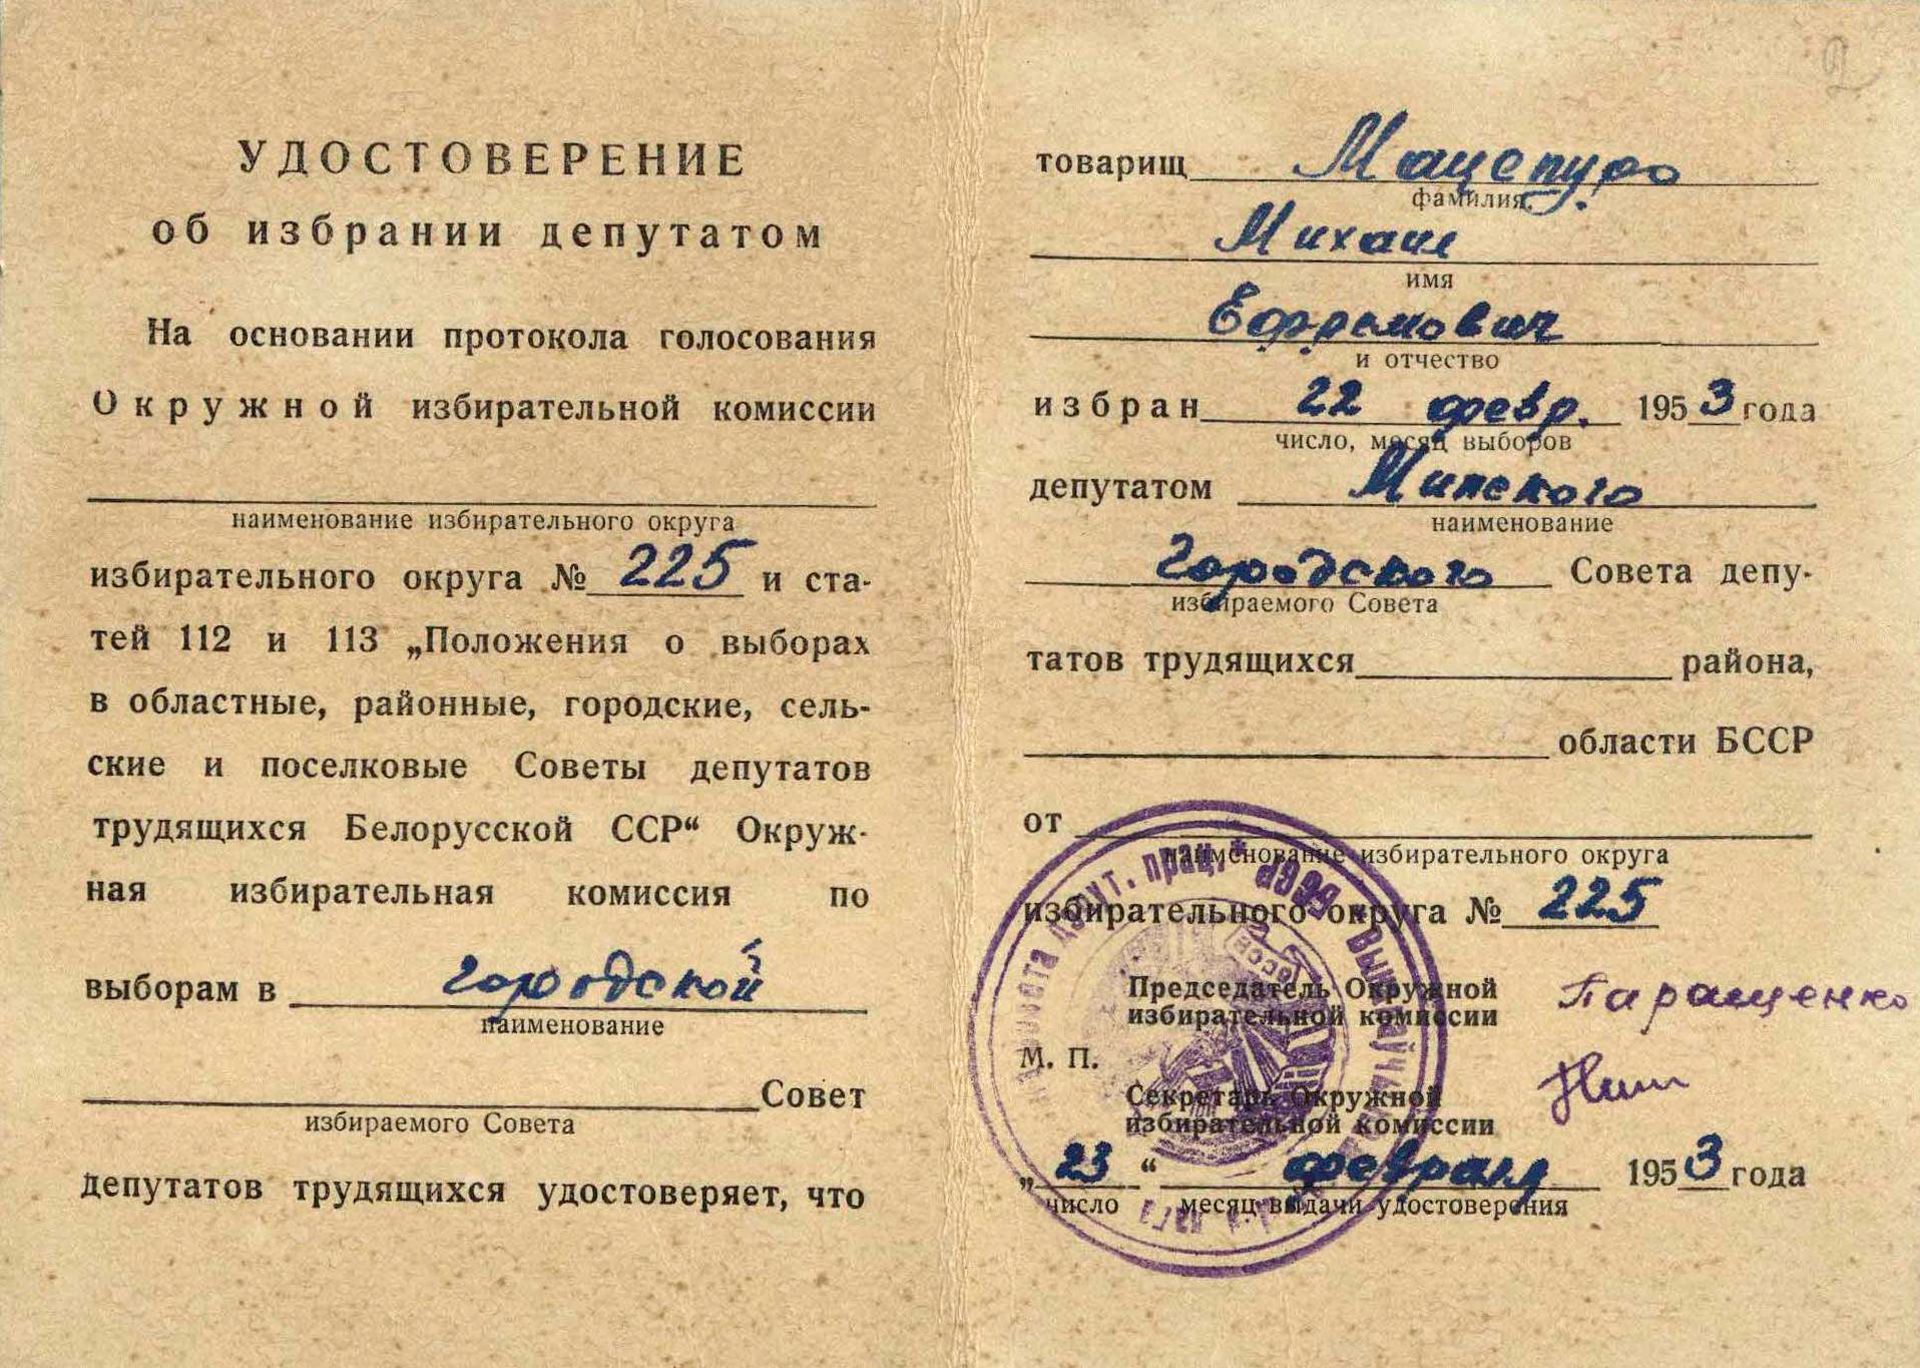 УДОСТОВЕРЕНИЕ
об избрании депутатом
На основании протокола голосования
Окружной избирательной комиссии
наименование избирательного округа
избирательного округа № 225 и ста-
тей 112 и 113 „Положения о выборах
в областные, районные, городские, сель-
ские и поселковые Советы депутатов
трудящихся Белорусской ССР“ Окруж-
ная избирательная комиссия по
выборам в городской
наименование
Совет
избираемого Совета
депутатов трудящихся удостоверяет, что
2
товарищ Мацепуро
фамилия,
Михаил
имя
Ефремович
и отчество
избран 22 февр. 1953 года
число, месяц выборов
депутатом Минского
наименование
Городского Совета депу-
избираемого Совета
татов трудящихся района,
области БССР
от
наименование избирательного округа
избирательного округа № 225
Председатель Окружной
избирательной комиссии Паращенко
М. П.
Секретарь Окружной
избирательной комиссии
„23“ февраля 1953 года
число месяц выдачи удостоверения
дэпут. прац. БССР